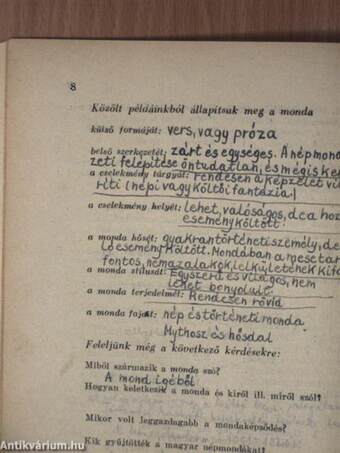 8
Közölt példáinkból állapítsuk meg a monda
külső formáját: vers, vagy próza
belső szerkezetét: zárt és egységes. A népmond
zeti felépítése öntudatlan, és mégis ke
a cselekmény tárgyát: rendesen a képzelet vi
ríti (népi vagy költői fantázia!
a cselekmény helyét: lehet, valóságos, de a hoz
esemény költött.
a monda hősét: gyakran történeti személy, de
ló esemény költött. Mondában a mesetar
fontos, nem az alakok lelkületének kifo
a monda stílusát: Egyszerű és világos, nem
lehet bonyolult.
a monda terjedelmét: Rendesen rövid
a monda fajait: nép és történeti monda
Mythosz és hősdal
Feleljünk még a következő kérdésekre:
Miből származik a monda szó?
A mond igéből
Hogyan keletkezik a monda és kiről ill. miről szól?
Mikor volt leggazdagabb a mondaképződés?
Kik gyűjtötték a magyar népmondákat?
Antikvárium.hu